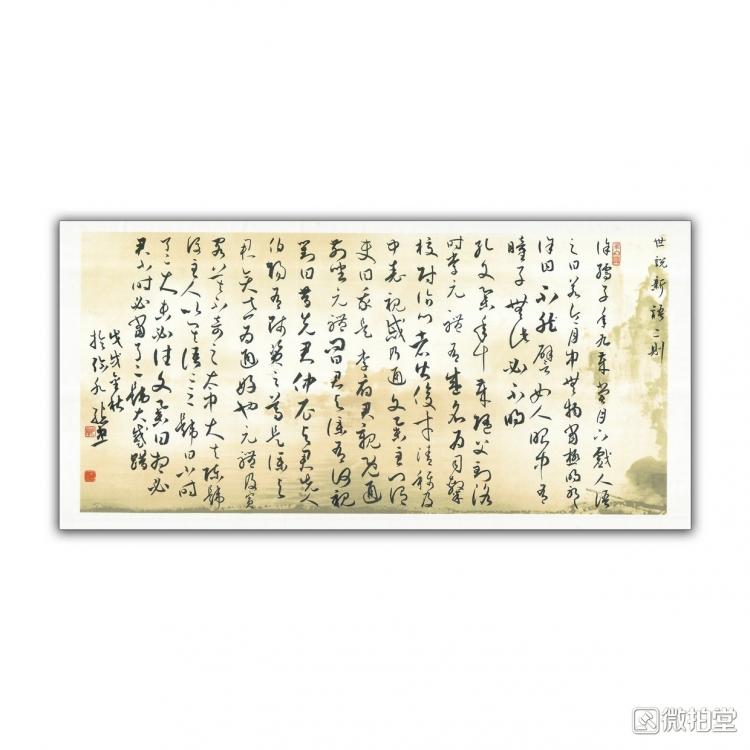 世説新語二則
徐孺子年九歲嘗月下戲人語
之曰若令月中無物當極明邪
徐曰不然譬如人眼中有
瞳子無此必不明
孔文舉年十歲隨父到洛
时李元禮有盛名為司隸
校尉詣門者皆俊才清稱及
中表親戚乃通文舉至門謂
吏曰我是李府君親既通
前坐元禮問曰君與僕有何親
對曰昔先君仲尼與君先人
伯陽有師資之尊是僕與
君奕世為通好也元禮及賓
客莫不奇之太中大夫陳韙
後至人以其語語之韙曰小时
了了大未必佳文舉曰想必
君小时必當了了韙大踧踖
戊戌金秋
微拍堂